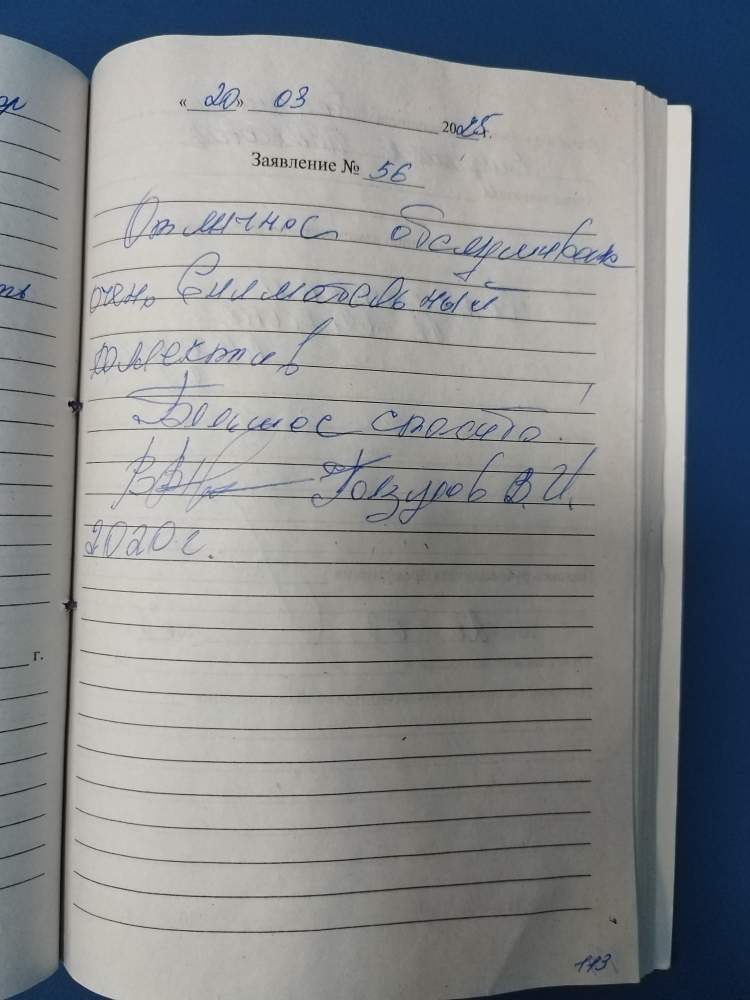 « 20 » 03 2025г.
Заявление № 56
Отличное обслуживан
очень внимательный
коллектив
Большое спасибо!
В.И.
2020г.
г.
113